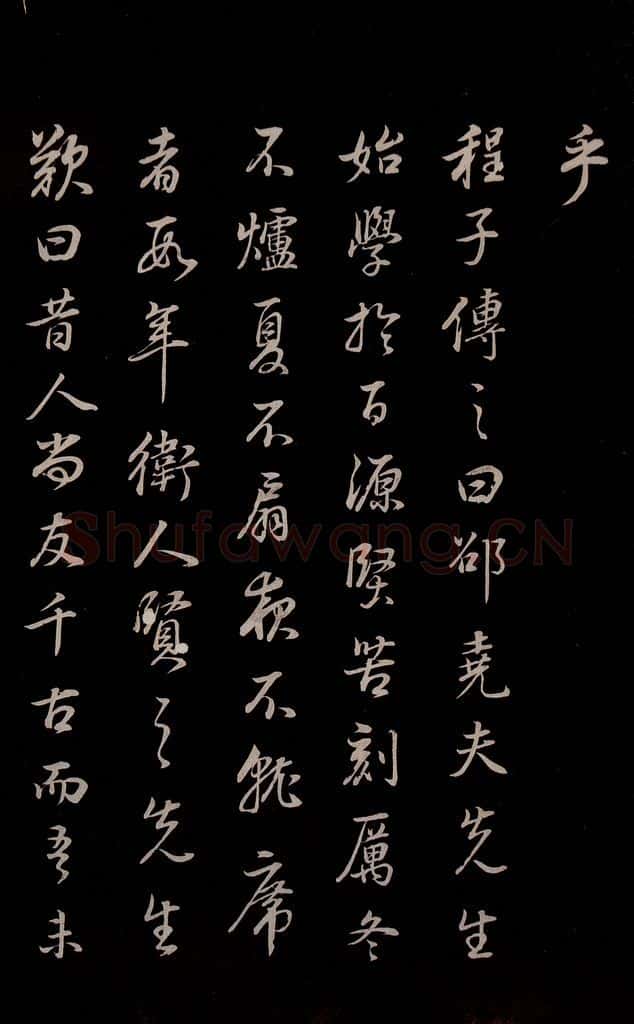 乎
程子傳之曰邵堯夫先生
始學於百源堅苦刻厲冬
不爐夏不扇夜不就席
者數年衛人賢之先生
歎曰昔人尚友千古而吾未
Shufawang.CN